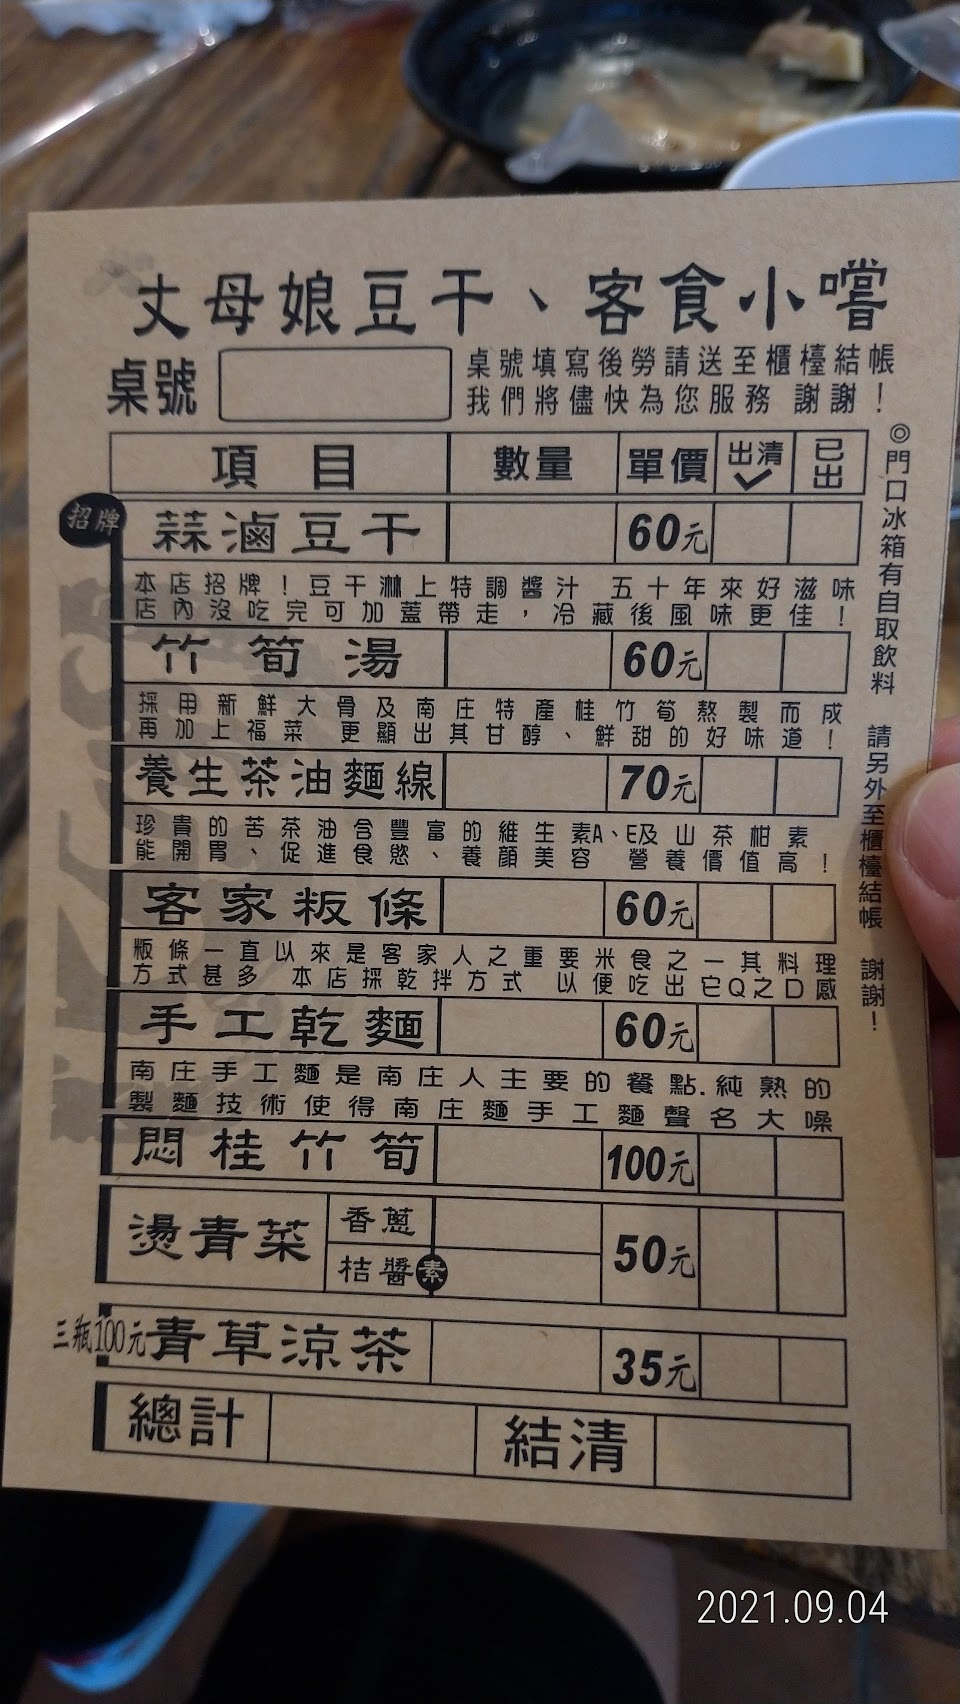 丈母娘豆干、客食小嚐
桌號
桌號填寫後勞請送至櫃檯結帳
我們將儘快為您服務 謝謝!
項目 數量 單價 出清✓ 已出
招牌
蒜滷豆干 60元
本店招牌!豆干淋上特調醬汁 五十年來好滋味
店內沒吃完可加蓋帶走,冷藏後風味更佳!
竹筍湯 60元
採用新鮮大骨及南庄特產桂竹筍熬製而成
再加上福菜 更顯出其甘醇、鮮甜的好味道!
養生茶油麵線 70元
珍貴的苦茶油含豐富的維生素A、E及山茶柑素
能開胃、促進食慾、養顏美容 營養價值高!
客家粄條 60元
粄條一直以來是客家人之重要米食之一其料理
方式甚多 本店採乾拌方式 以便吃出它Q之D感
手工乾麵 60元
南庄手工麵是南庄人主要的餐點.純熟的
製麵技術使得南庄麵手工麵聲名大噪
悶桂竹筍 100元
燙青菜 50元
香蔥
桔醬 素
三瓶100元 青草涼茶 35元
總計 結清
◎門口冰箱有自取飲料 請另外至櫃檯結帳 謝謝!
2021.09.04